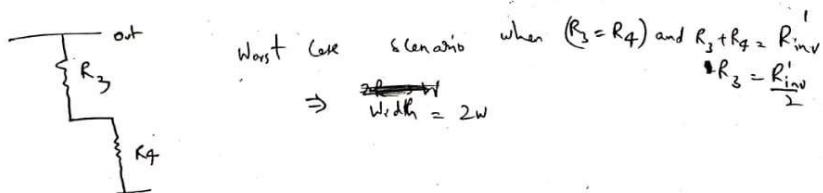 out
R3
R4
Worst Case Scenario when (R3 = R4) and R3 + R4 = R'inv
R3 = R'inv/2
⇒ Width = 2w